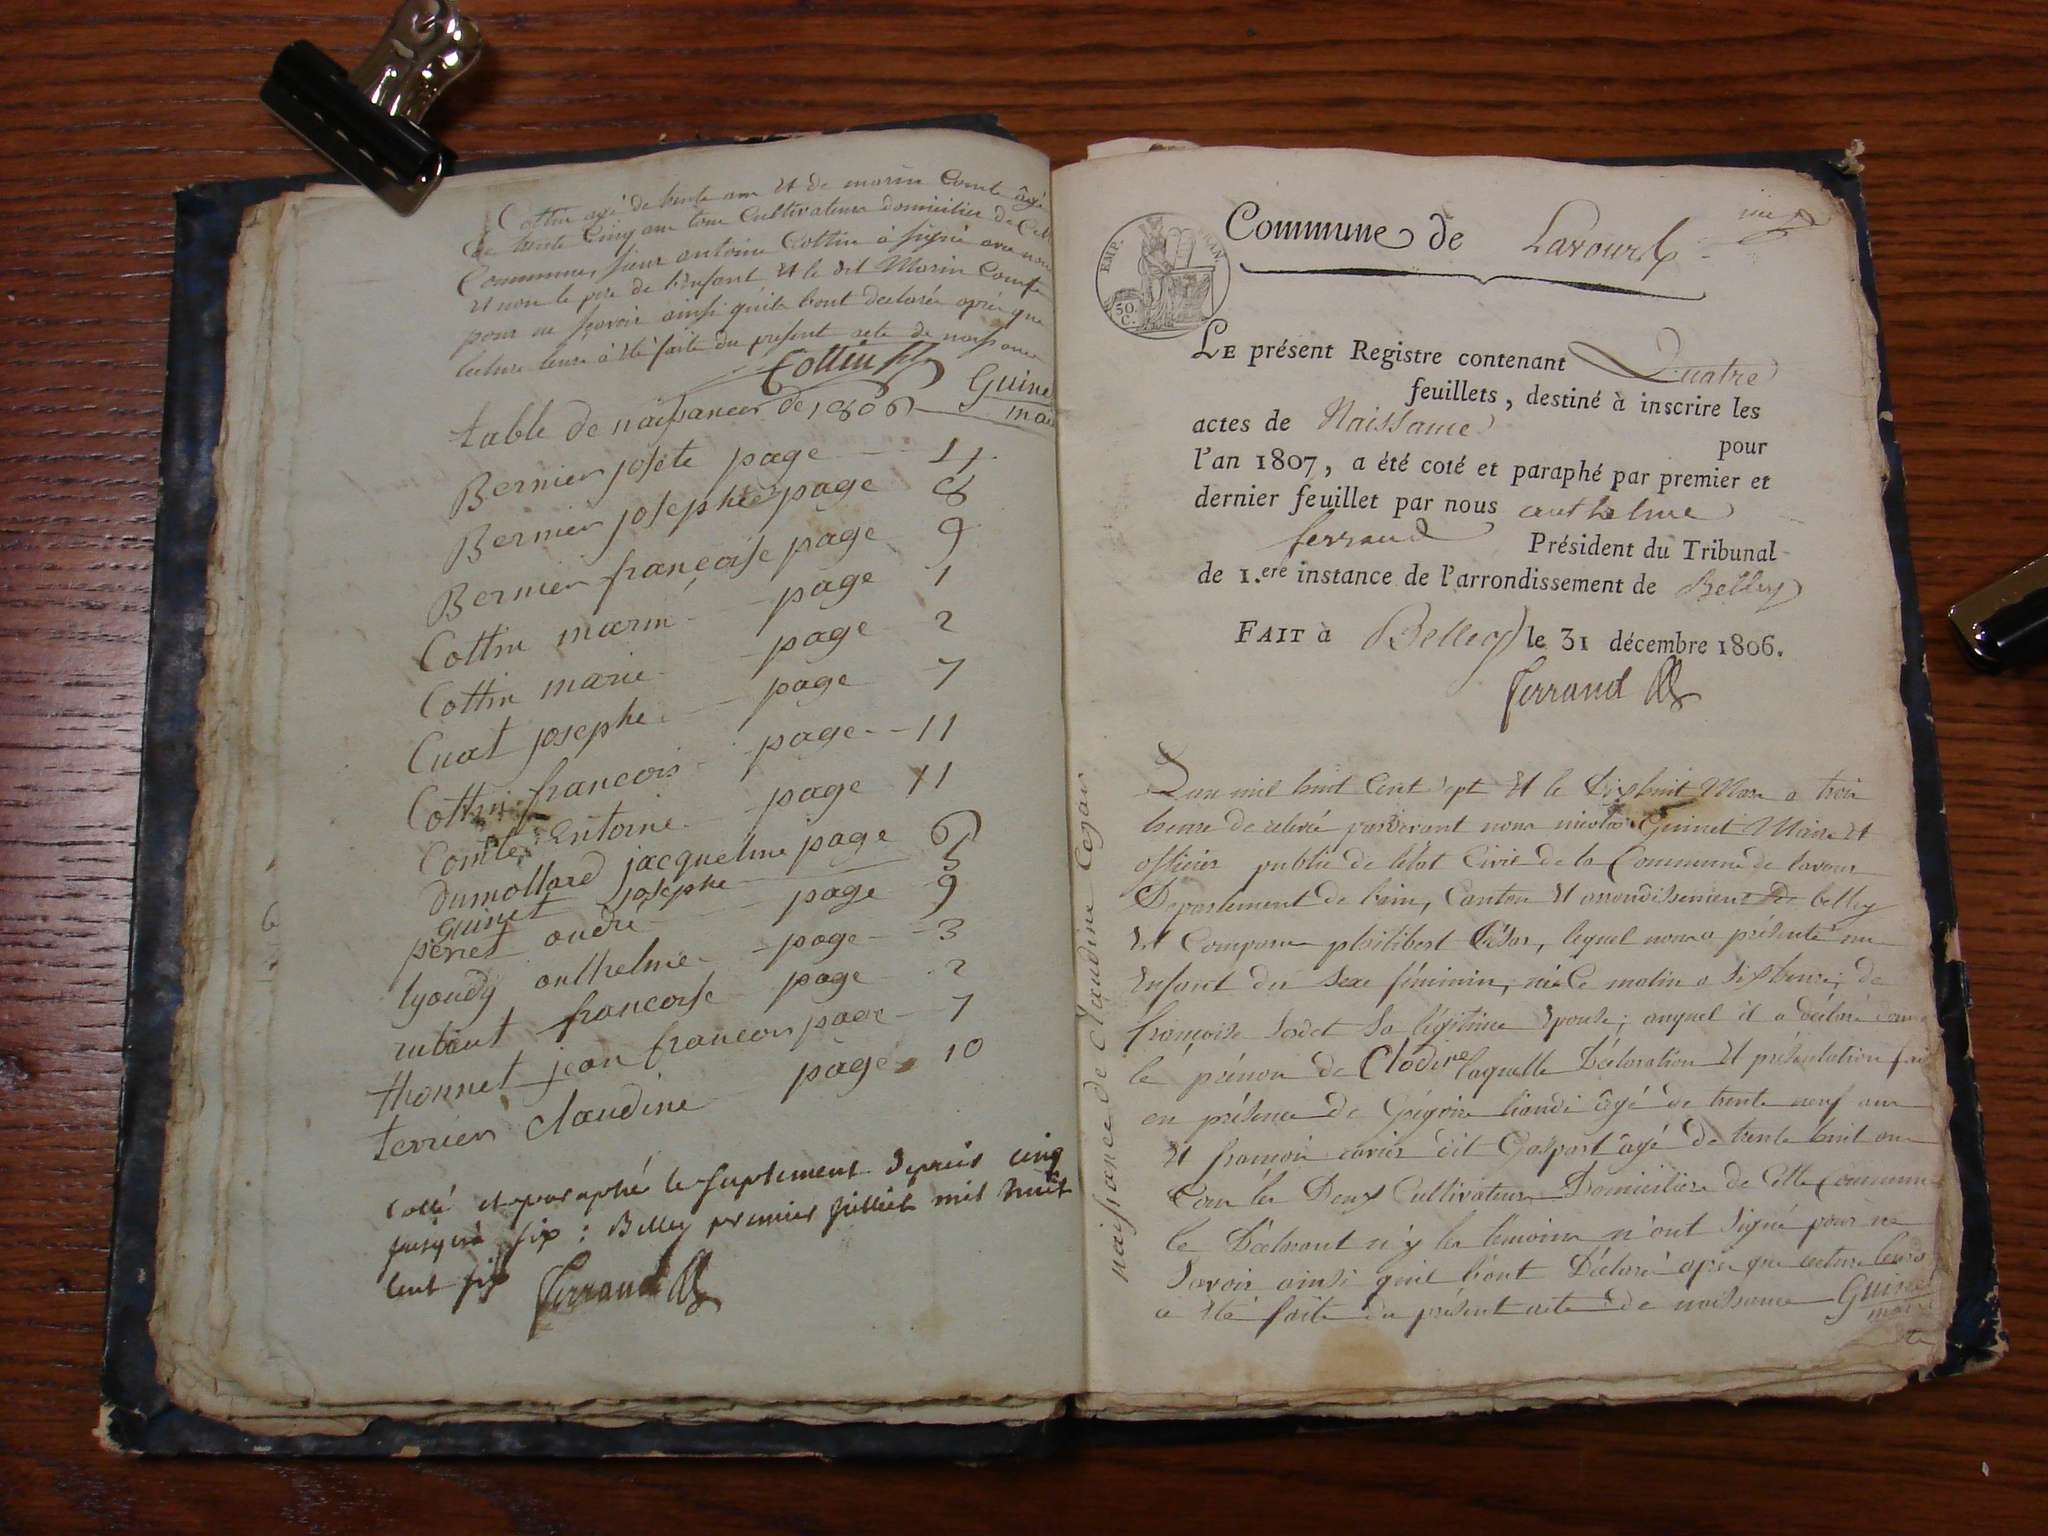 Cottin agé de trente ans et de marin Comte âgé
de trente Cinq ans tous Cultivateurs domiciliés de Cette
Commune, sieur antoine Cottin à signé avec nous
et non le pere de l'enfant et le dit Marin Comte
pour ne scavoir ainsi quils l'ont declarés après que
lecture leurs à été faite du present acte de naissance
Cottin Guinet
maire
table de naissances de 1806
Bernier josete page 11
Bernier josephe page 8
Bernier françoise page 9
Cottin marin page 1
Cottin marie page 2
Cuat josephe page 7
Cottin francois page 11
Comte Entoine page 11
Dumollard jacqueline page 6
guinet josephe 5
perret andré page 9
lyaudy anthelme page 3
rubaut francoise page 2
thonnet jean francois page 7
terrier claudine page 10
Cotté et paraphé le suplement depuis cinq
jusqu'à six : Belley premier juillet mil huit
cent six Ferrand
EMP. FRAN.
50 C.
Commune de Lavours
LE présent Registre contenant Quatre
feuillets, destiné à inscrire les
actes de Naissance
pour
l'an 1807, a été coté et paraphé par premier et
dernier feuillet par nous anthelme
ferrand Président du Tribunal
de 1.ere instance de l'arrondissement de Belley
FAIT à Belley le 31 décembre 1806.
Ferrand
naissance de Claudine
L'an mil huit Cent sept et le dixhuit Mars a trois
heures de relevée pardevant nous nicolas Guinet Maire et
officier public de l'état Civil de la Commune de lavours
Departement de l'ain, Canton et arrondissement de belley
est Comparu philibert César, lequel nous a présenté un
Enfant du sexe féminin, née Ce matin a six heures, de
françoise sa légitime épouse; auquel il a déclaré donner
le prénom de Clodine laquelle Déclaration et présentation fait
en présence de Grégoire liaudi âgé de trente neuf ans
et françois dit Gaspart âgé de trente huit ans
tous les Deux Cultivateurs Domiciliés de Cette Commune
le Déclarant n'y les témoins n'ont signé pour ne
savoir ainsi quil l'ont Déclaré après que lecture leurs
a été faite du présent acte de naissance Guinet
maire